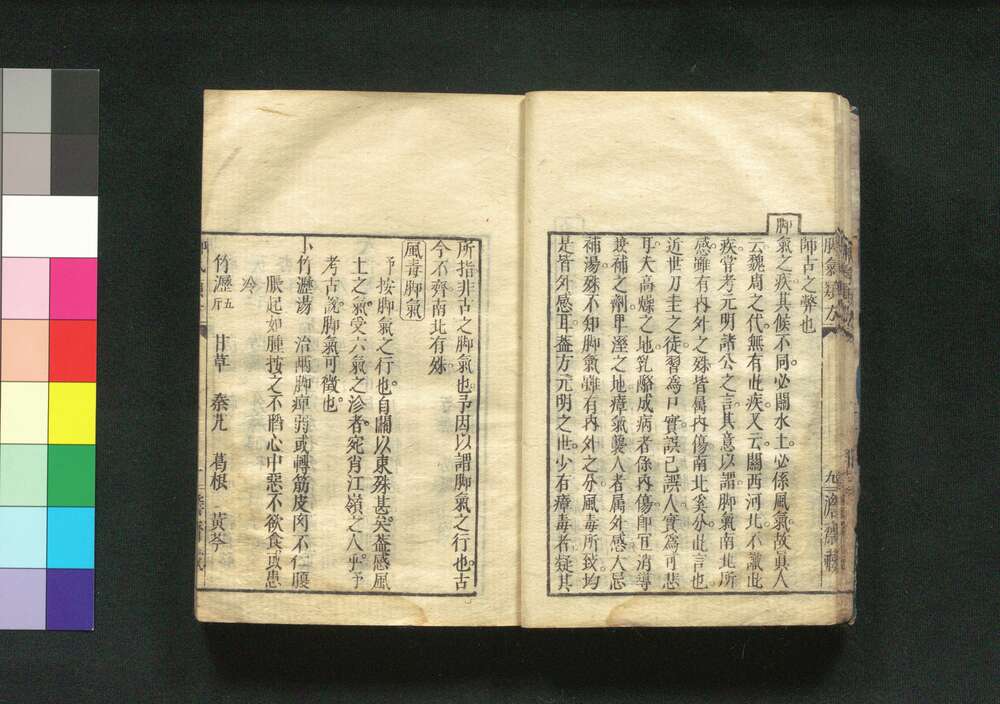 師古之弊也
脚氣之疾其候不同必關水土必係風氣故真人
云魏周之代無有此疾又云關西河北不識此
疾管考元明諸公之言其意以謂脚氣南北所
感雖有内外之殊皆屬内傷南北奚分此言也
近世刀圭之徒習為尸實誤己誤人實為可悲
耳夫高燥之地乳酪成病者係内傷即宜消導
發補之劑卑溼之地瘴氣襲人者属外感大忌
補湯殊不知脚氣雖有内外之分風毒所致均
是皆外感耳葢方元明之世少有瘴毒者疑其
所指非古之脚氣也予因以謂脚氣之行也古
今不齊南北有殊
風毒脚氣
予按脚氣之行也自關以東殊甚矣葢感風
土之氣受六氣之沴者宛肖江嶺之人乎予
考古說脚氣可徴也
竹瀝湯 治兩脚痺弱或轉筋皮肉不仁腹
脹起如腫按之不陷心中惡不欲食或患
冷
竹瀝五斤 甘草 秦艽 葛根 黃芩